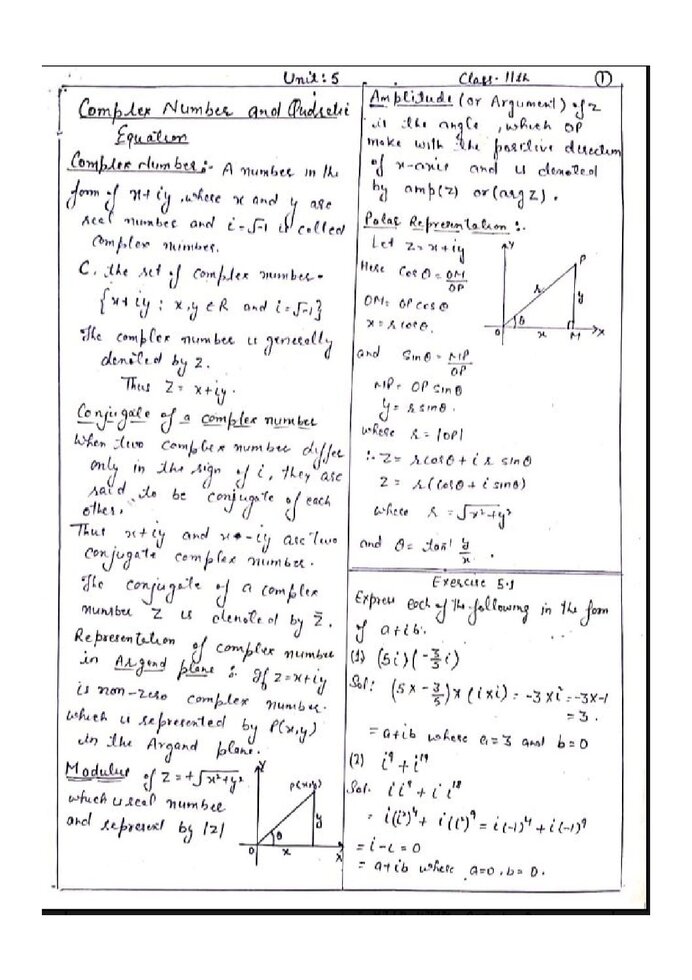 Unit: 5
Class- 11th
1
Complex Number and Qudratic
Equation
Complex Number:- A number in the
form of x+iy, where x and y are
real number and i=√-1 is called
complex number.
C, the set of complex number-
{x+iy : x,y ∈ R and i=√-1}
The complex number is generally
denoted by Z.
Thus Z = x+iy.
Conjugate of a complex number
When two complex number differ
only in the sign of i, they are
said to be conjugate of each
other.
Thus x+iy and x-iy are two
conjugate complex number.
The conjugate of a complex
number Z is denoted by Z̄.
Representation of complex number
in Argand plane : If Z=x+iy
is non-zero complex number.
which is represented by P(x,y)
in the Argand plane.
Modulus of Z=+√x²+y²
which is real number
and represent by |z|
Y
P(x,y)
y
θ
O
x
X
Amplitude (or Argument) of z
is the angle, which OP
make with the positive direction
of x-axis and is denoted
by amp(z) or (arg z).
Polar Representation :-
Let Z=x+iy
Here Cosθ = OM/OP
OM= OP cosθ
x=r cosθ.
Y
P
r
y
θ
O
x
M
X
and Sinθ = MP/OP
MP= OP sinθ
y= r sinθ.
where r= |OP|
∴ Z= r cosθ + i r sinθ
Z = r(cosθ + i sinθ)
where r = √x²+y²
and θ= tan⁻¹ y/x.
Exercise 5.1
Express each of the following in the form
of a+ib.
(1) (5i)(-3/5 i)
Sol: (5x -3/5)x(ixi) = -3xi = -3x-1
= 3.
= a+ib where a=3 and b=0
(2) i⁹ + i¹⁹
Sol. i i⁸ + i i¹⁸
= i(i²)⁴ + i(i²)⁹ = i(-1)⁴ + i(-1)⁹
= i-i = 0
= a+ib where a=0, b=0.